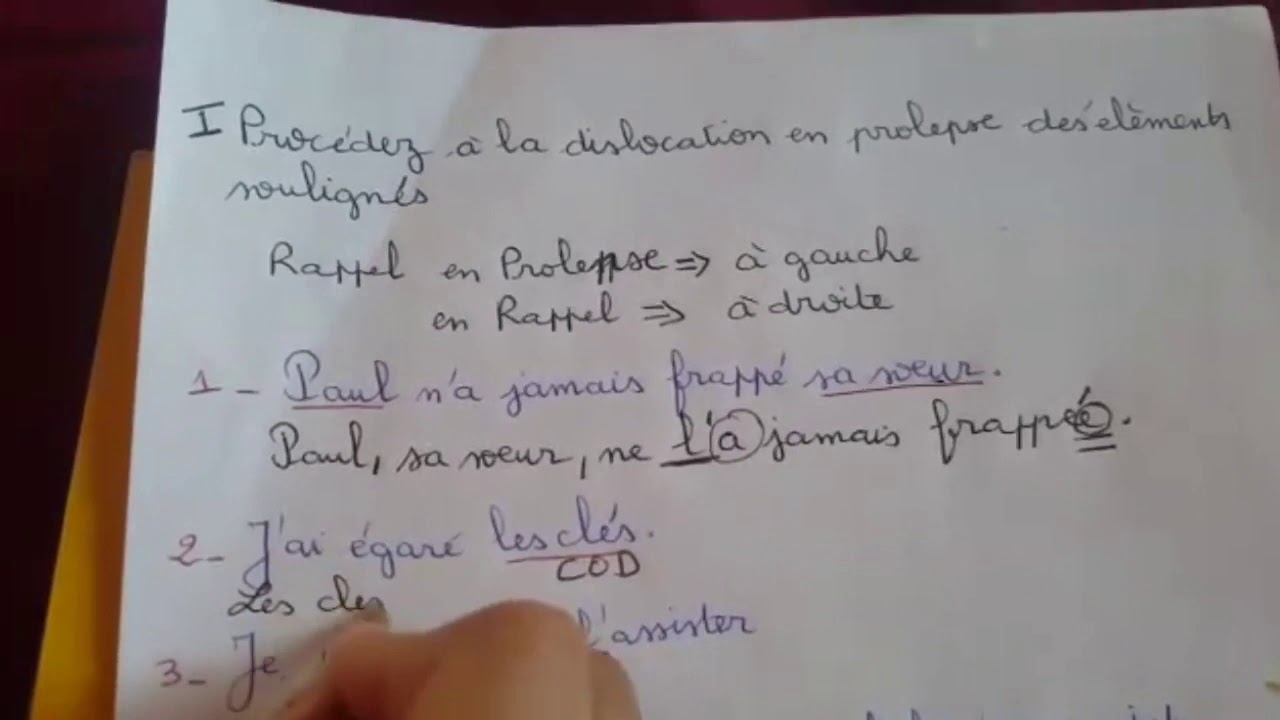 I Procédez à la dislocation en prolepse des élèments
soulignés
Rappel en Prolepse => à gauche
en Rappel => à droite
1 - Paul n'a jamais frappé sa soeur.
Paul, sa soeur, ne l'a jamais frappée.
2- J'ai égaré les clés.
COD
Les cles
3- Je l'assister